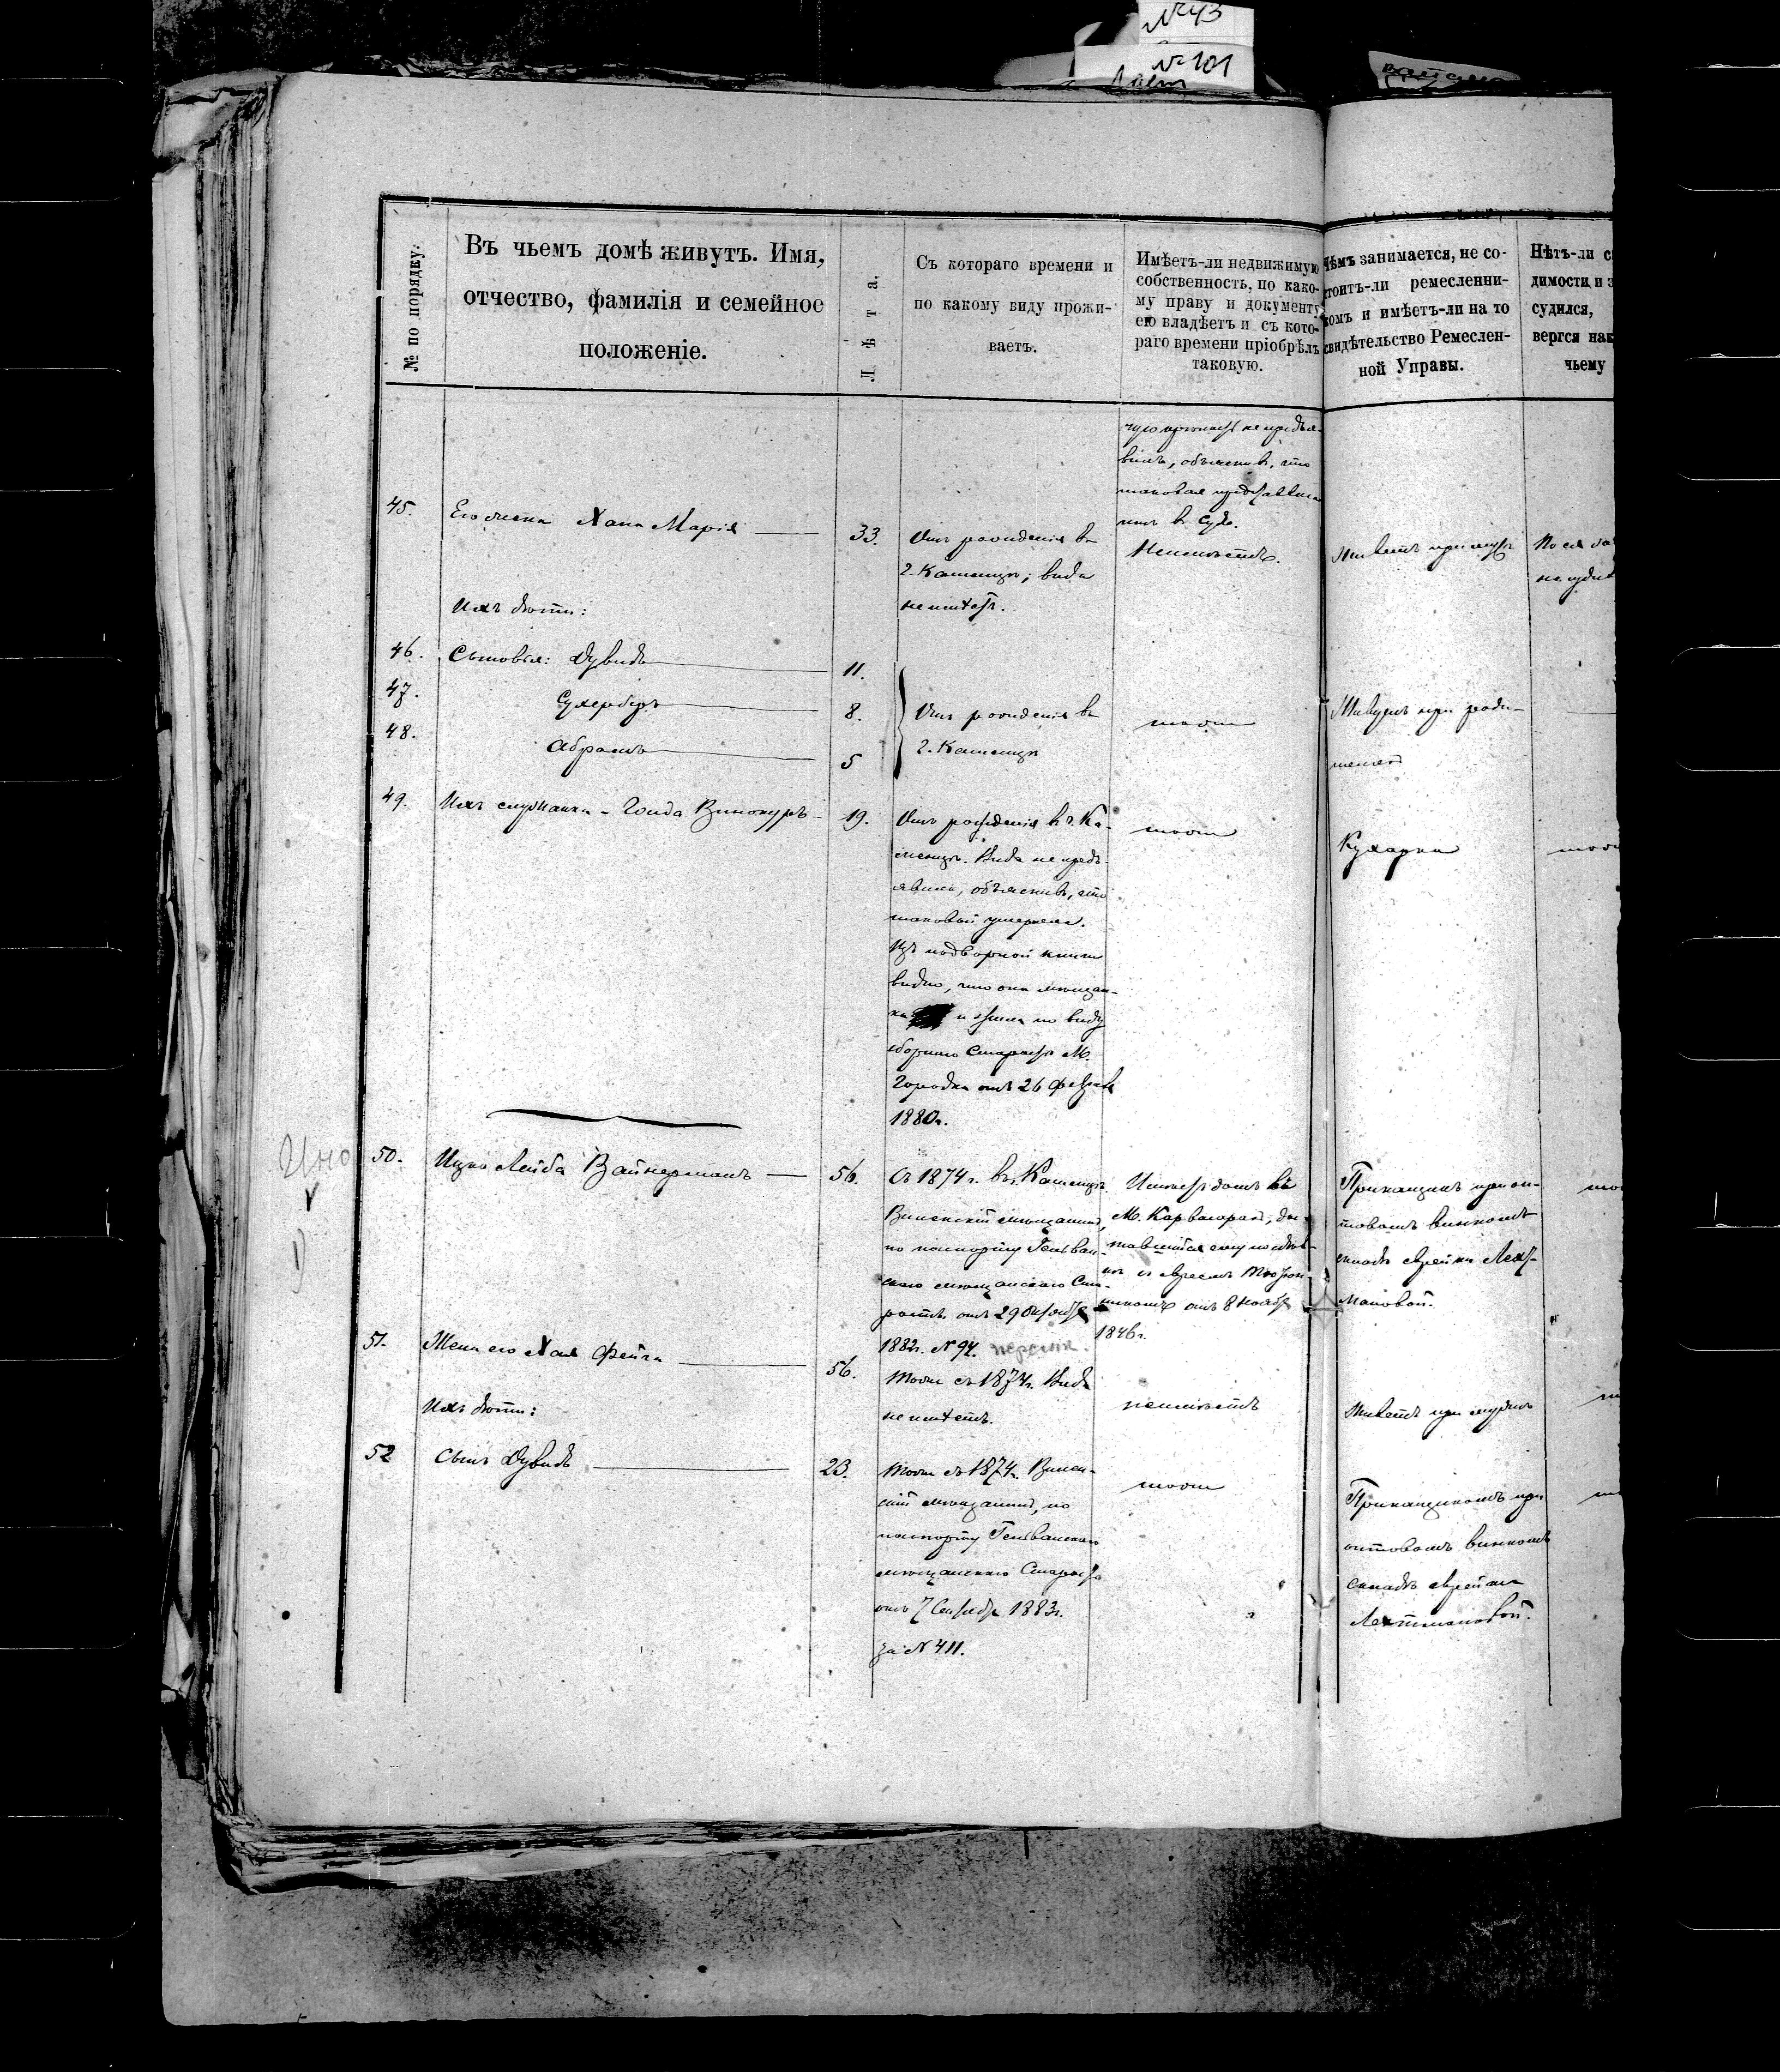 №43
№101
№ по порядку.
Въ чьемъ домѣ живутъ. Имя,
отчество, фамилія и семейное
положеніе.
Лѣта.
Съ котораго времени и
по какому виду прожи-
ваетъ.
Имѣетъ-ли недвижимую
собственность, по како-
му праву и документу
ею владѣетъ и съ кото-
раго времени пріобрѣлъ
таковую.
Чѣмъ занимается, не со-
стоитъ-ли ремесленни-
комъ и имѣетъ-ли на то
свидѣтельство Ремеслен-
ной Управы.
Нѣтъ-ли
димости и
судился,
вергся
чьему
не предъя-
вилъ, объяснивъ, что
таковая
въ Судѣ.
45.
Его жена Хана Марія
33.
Отъ рожденія въ
г. Каменцѣ; вида
не имѣетъ.
Неимѣетъ.
Живетъ при мужѣ
Ихъ дѣти:
46.
Сыновья: Дувидъ
11.
47.
Сухерберъ
8.
48.
Абрамъ
5
Отъ рожденія въ
г. Каменцѣ
тоже
Живутъ при роди-
теляхъ
49.
Ихъ служанка - Гольда Винокуръ
19.
Отъ рожденія въ г. Ка-
менцѣ. Вида не предъ-
явила, объяснивъ, что
таковой утерянъ.
Изъ подворной книги
видно, что она мѣщан-
ка и жила по виду
сборнаго Старосты М.
Городка отъ 26 Февраля
1880г.
тоже
Кухарка
50.
Ицко Лейба Вайнерманъ
56.
Съ 1874 г. въ г. Каменцѣ.
мѣщанинъ,
по паспорту
скаго мѣщанскаго Ста-
росты отъ 29 Октября
1882г. № 94.
Имѣетъ домъ въ
М. до-
ставшійся ему по
отъ 8 Ноября
1846г.
Прикащикъ при оп-
товомъ винномъ
складѣ еврейки Лехт-
мановой.
51.
Жена его Хая Фейга
56.
Тоже съ 1874г. Вида
не имѣетъ.
неимѣетъ
Живетъ при мужѣ
Ихъ дѣти:
52
Сынъ Дувидъ
23.
Тоже съ 1874г.
скій мѣщанинъ, по
паспорту
мѣщанскаго Старосты
отъ 7 Сентября 1883г.
за № 411.
тоже
Прикащикомъ при
оптовомъ винномъ
складѣ еврейки
Лехтмановой.